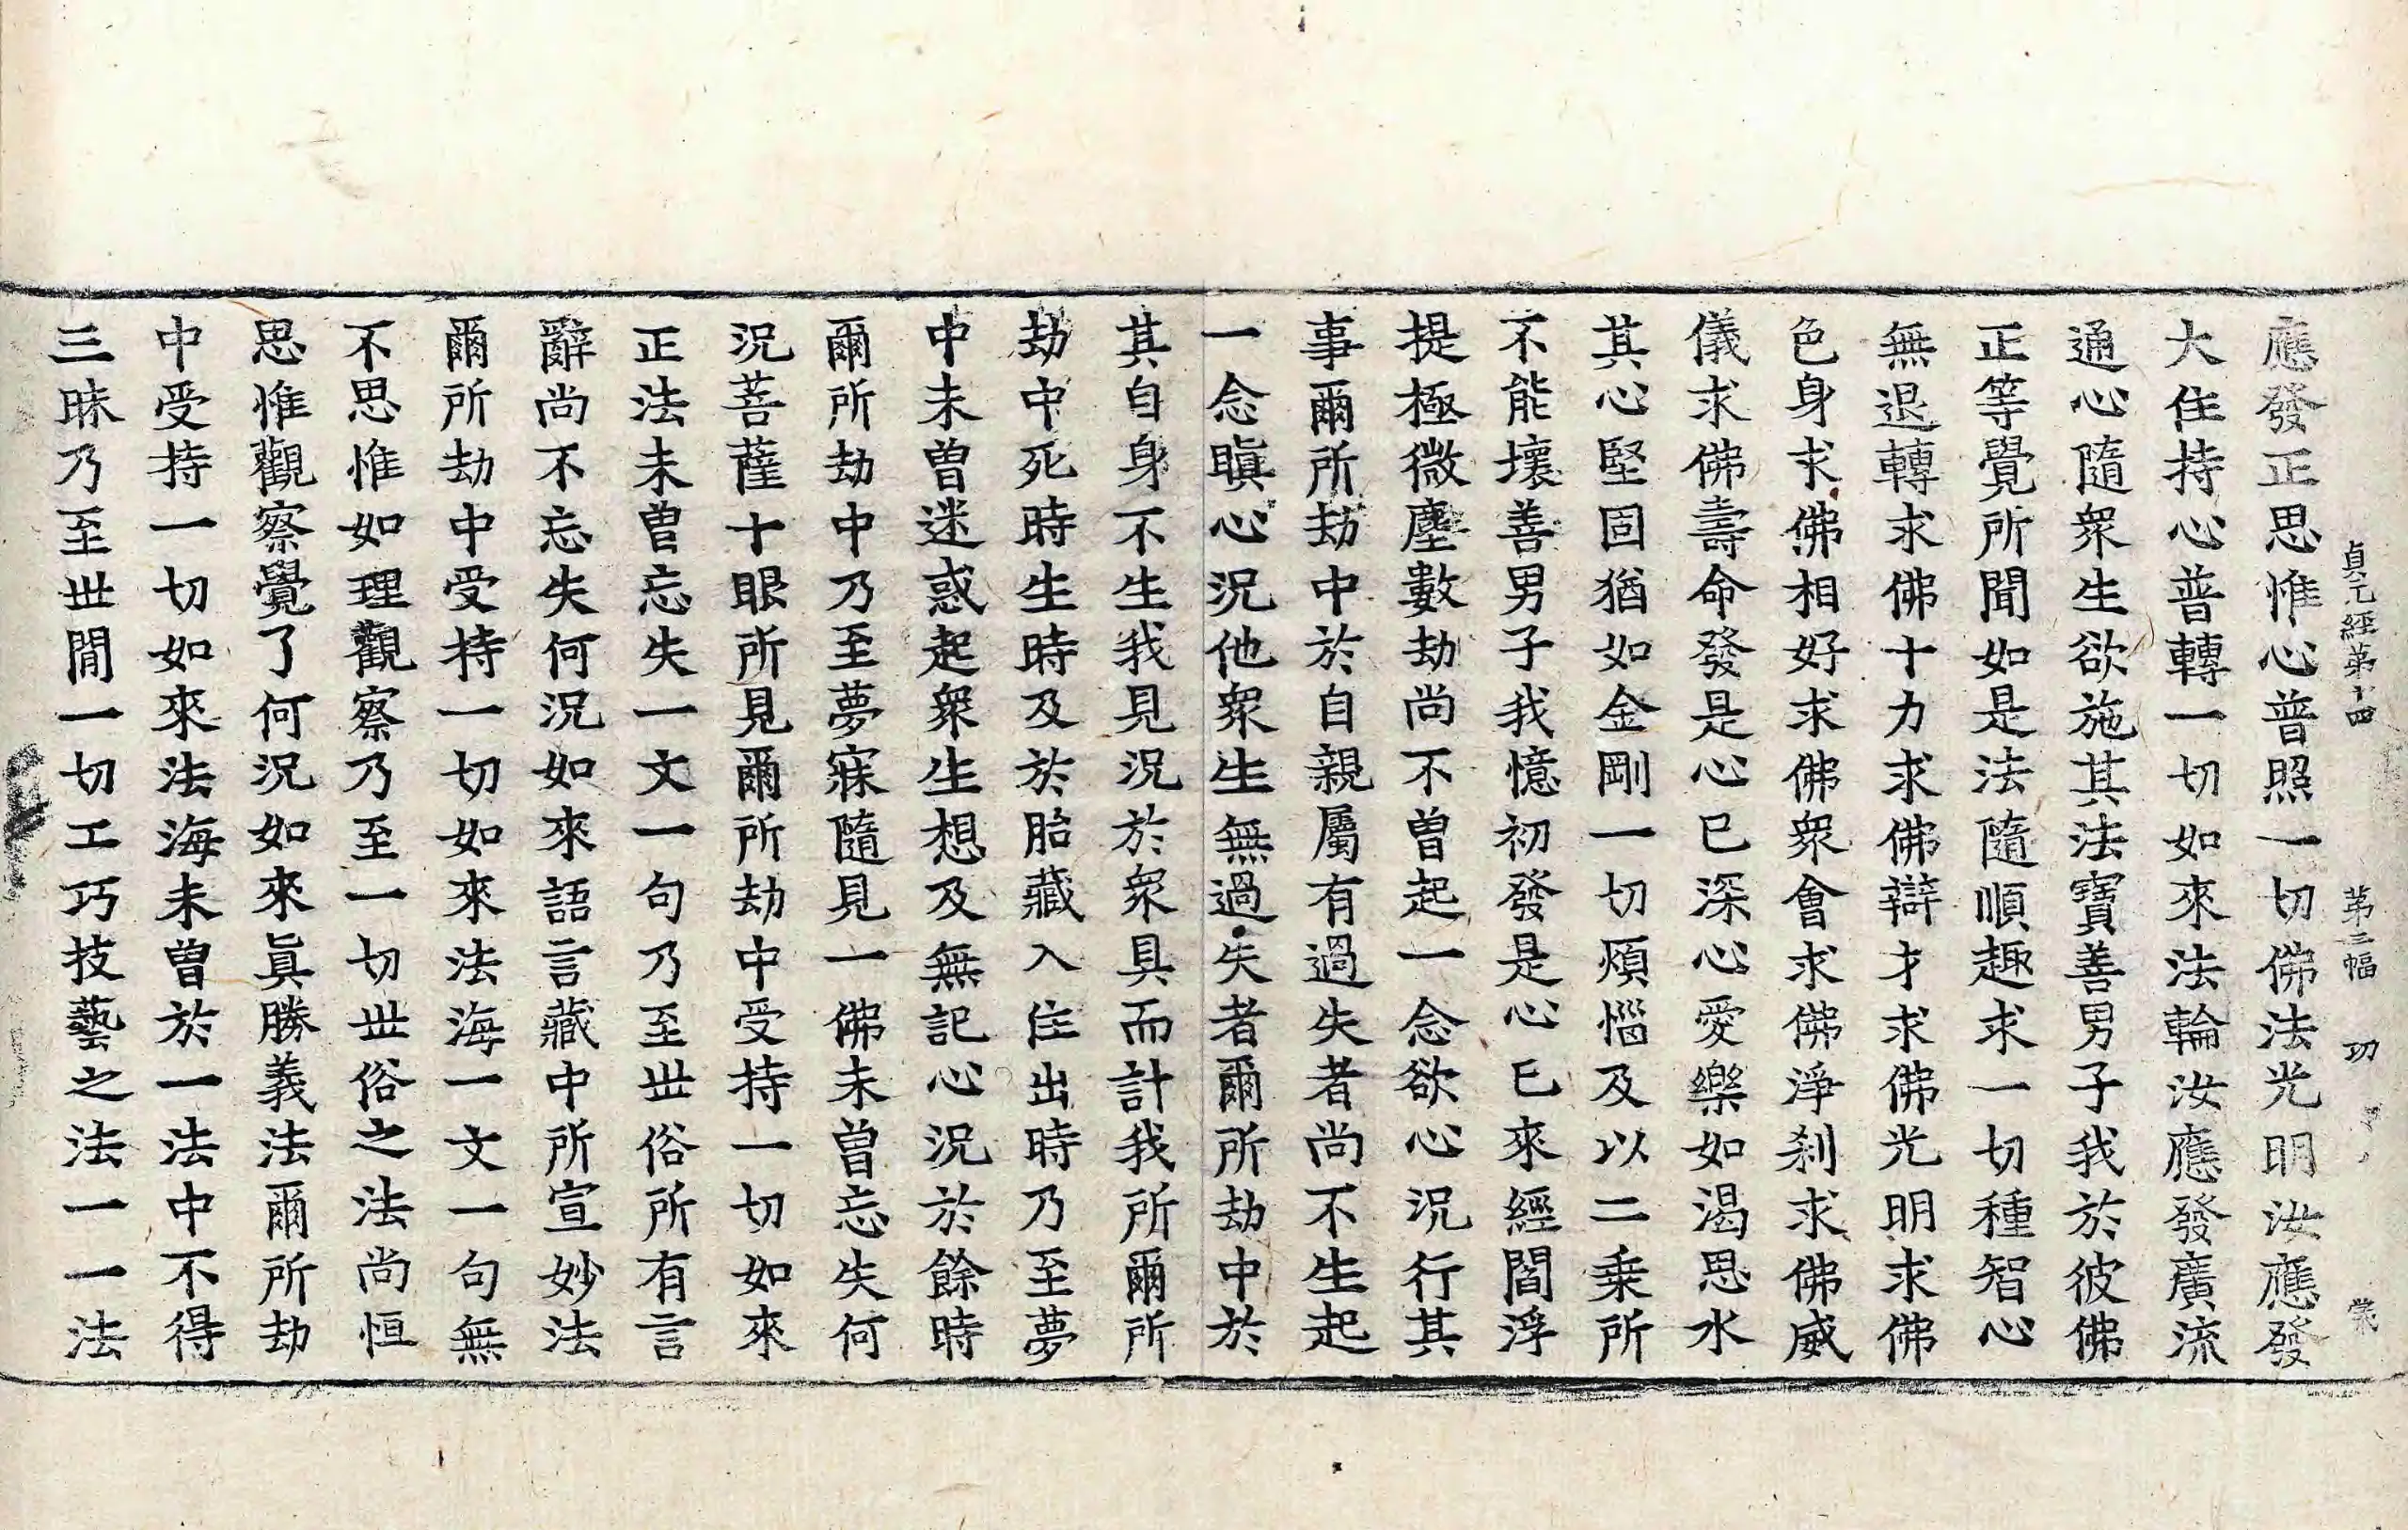 貞元經第十四 第三幅 功
應發正思惟心普照一切佛法光明汝應發
大住持心普轉一切如來法輪汝應發廣流
通心隨衆生欲施其法寶善男子我於彼佛
正等覺所聞如是法隨順趣求一切種智心
無退轉求佛十力求佛辯才求佛光明求佛
色身求佛相好求佛衆會求佛淨刹求佛威
儀求佛壽命發是心已深心愛樂如渴思水
其心堅固猶如金剛一切煩惱及以二乗所
不能壞善男子我憶初發是心已來經閻浮
提極微塵數劫尚不曾起一念欲心況行其
事爾所劫中於自親屬有過失者尚不生起
一念瞋心況他衆生無過失者爾所劫中於
其自身不生我見況於衆具而計我所爾所
劫中死時生時及於胎藏入住出時乃至夢
中未曾迷惑起衆生想及無記心況於餘時
爾所劫中乃至夢寐隨見一佛未曾忘失何
況菩薩十眼所見爾所劫中受持一切如來
正法未曾忘失一文一句乃至世俗所有言
辭尚不忘失何況如來語言藏中所宣妙法
爾所劫中受持一切如來法海一文一句無
不思惟如理觀察乃至一切世俗之法尚恒
思惟觀察覺了何況如來眞勝義法爾所劫
中受持一切如來法海未曾於一法中不得
三昧乃至世間一切工巧技藝之法一一法